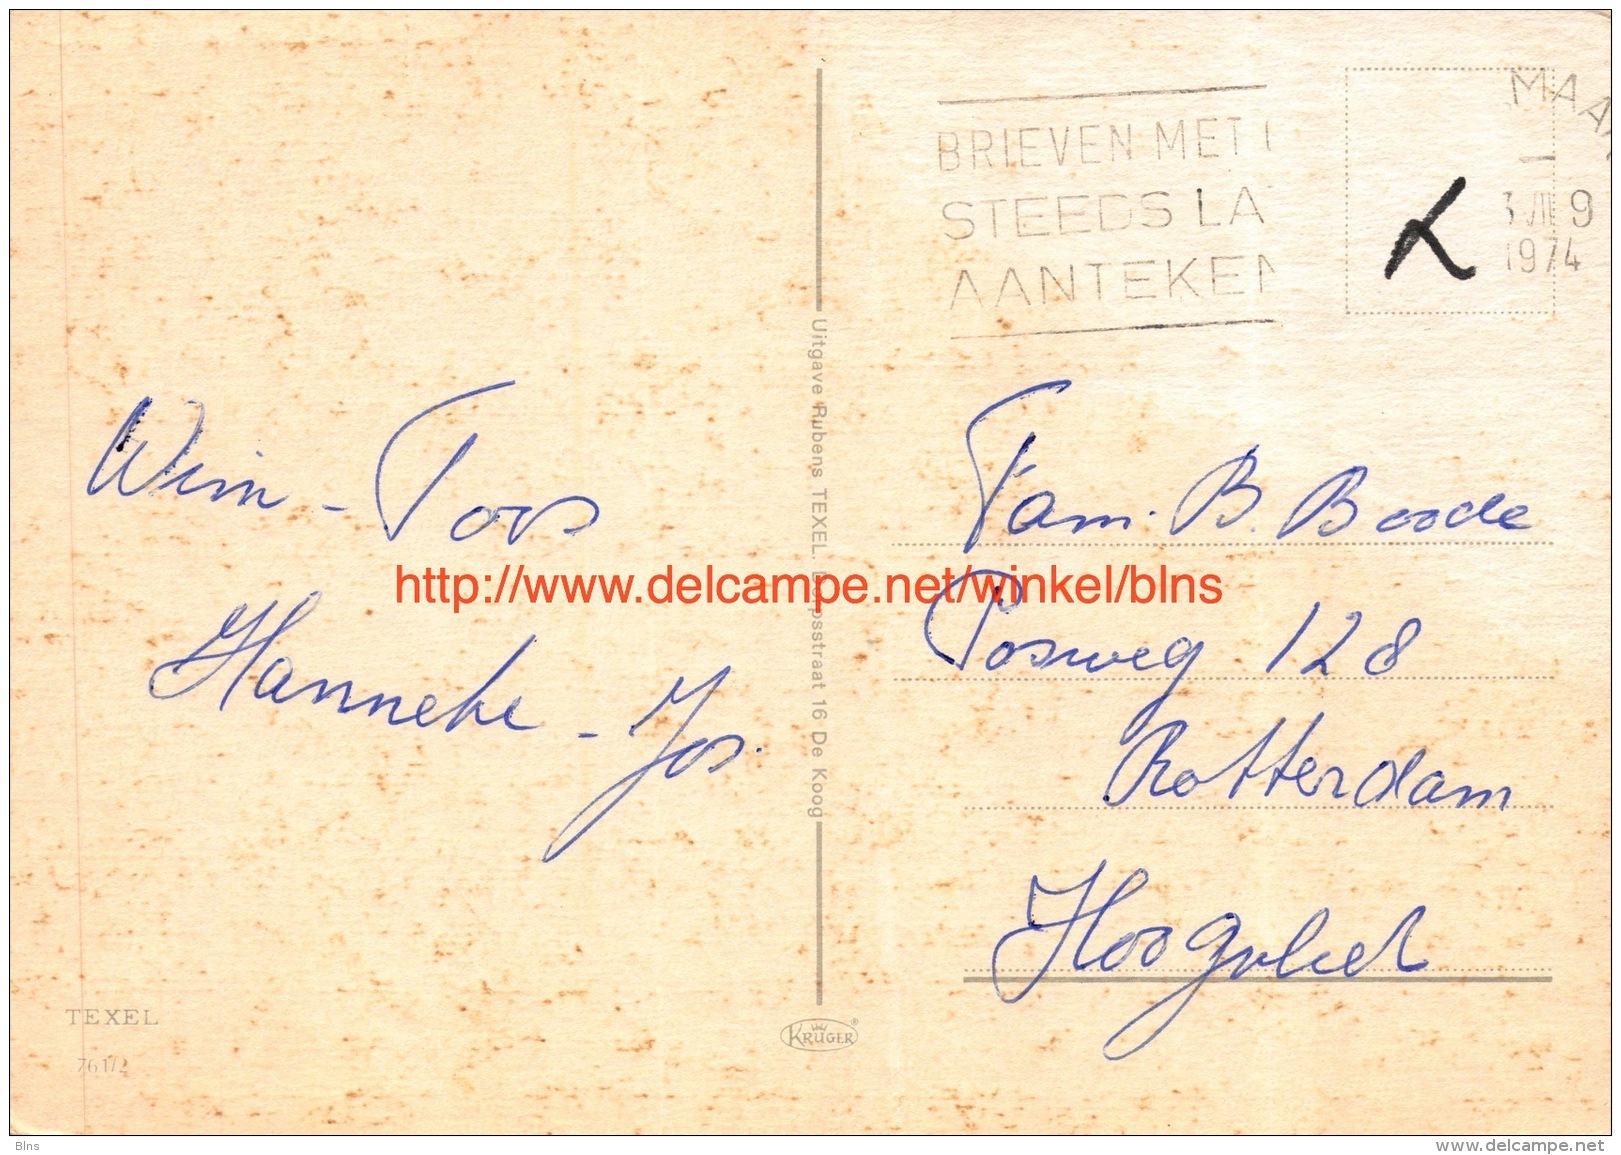 BRIEVEN MET
STEEDS LA
AANTEKEN
MAA
1974
Uitgave Rubens TEXEL. Dorpsstraat 16 De Koog
Wim - Toos
Hanneke - Jos.
Fam. B. Boode
Posweg 128
Rotterdam
Hoogvliet
http://www.delcampe.net/winkel/blns
TEXEL
761/2
KRÜGER®
Blns
www.delcampe.net